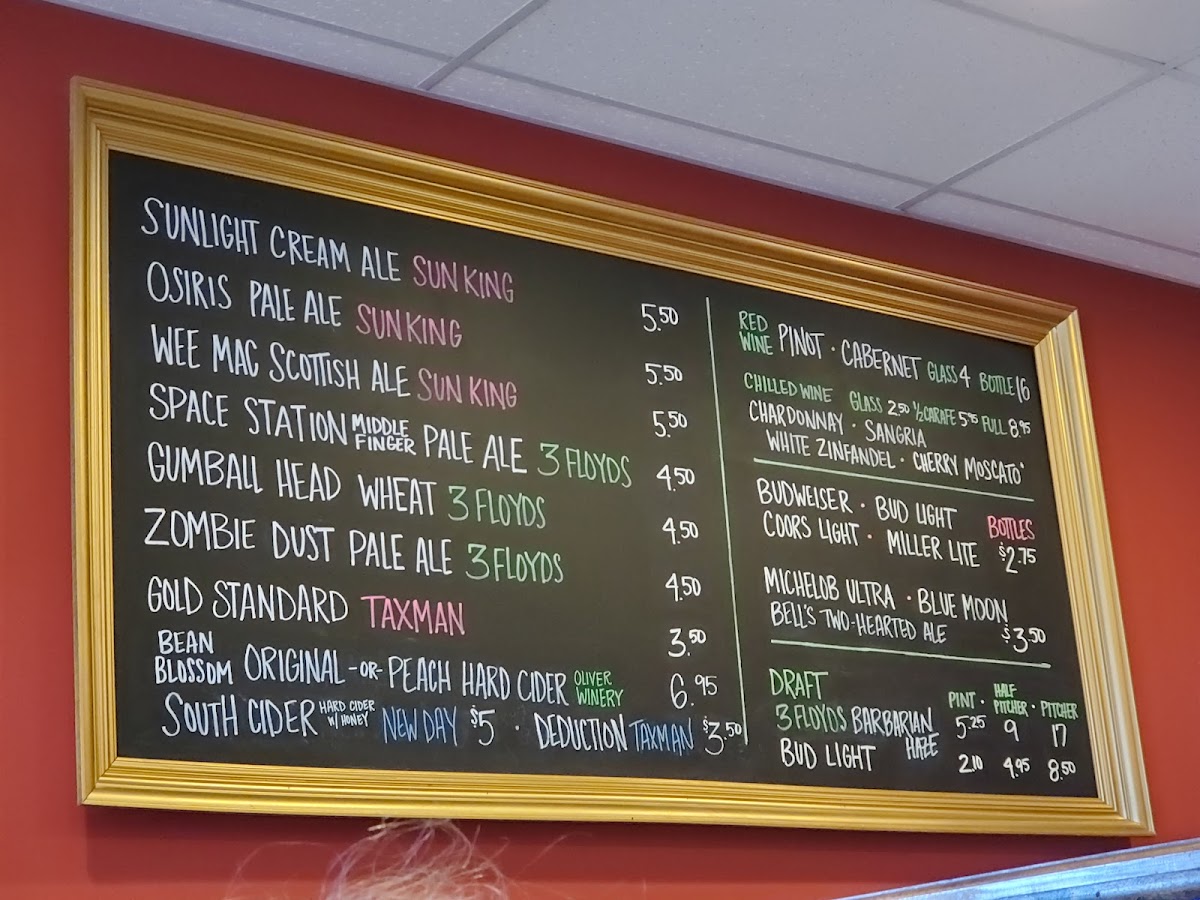 SUNLIGHT CREAM ALE SUN KING 5.50
OSIRIS PALE ALE SUN KING 5.50
WEE MAC SCOTTISH ALE SUN KING 5.50
SPACE STATION MIDDLE FINGER PALE ALE 3 FLOYDS 4.50
GUMBALL HEAD WHEAT 3 FLOYDS 4.50
ZOMBIE DUST PALE ALE 3 FLOYDS 4.50
GOLD STANDARD TAXMAN 3.50
BEAN BLOSSOM ORIGINAL -OR- PEACH HARD CIDER OLIVER WINERY 6.95
SOUTH CIDER HARD CIDER W/ HONEY NEW DAY $5 · DEDUCTION TAXMAN $3.50
RED WINE PINOT · CABERNET GLASS 4 BOTTLE 16
CHILLED WINE GLASS 2.50 ½ CARAFE 5.95 FULL 8.95
CHARDONNAY · SANGRIA
WHITE ZINFANDEL · CHERRY MOSCATO
BUDWEISER · BUD LIGHT BOTTLES
COORS LIGHT · MILLER LITE $2.75
MICHELOB ULTRA · BLUE MOON
BELL'S TWO-HEARTED ALE $3.50
DRAFT PINT · HALF PITCHER · PITCHER
3 FLOYDS BARBARIAN HAZE 5.25 9 17
BUD LIGHT 2.10 4.95 8.50